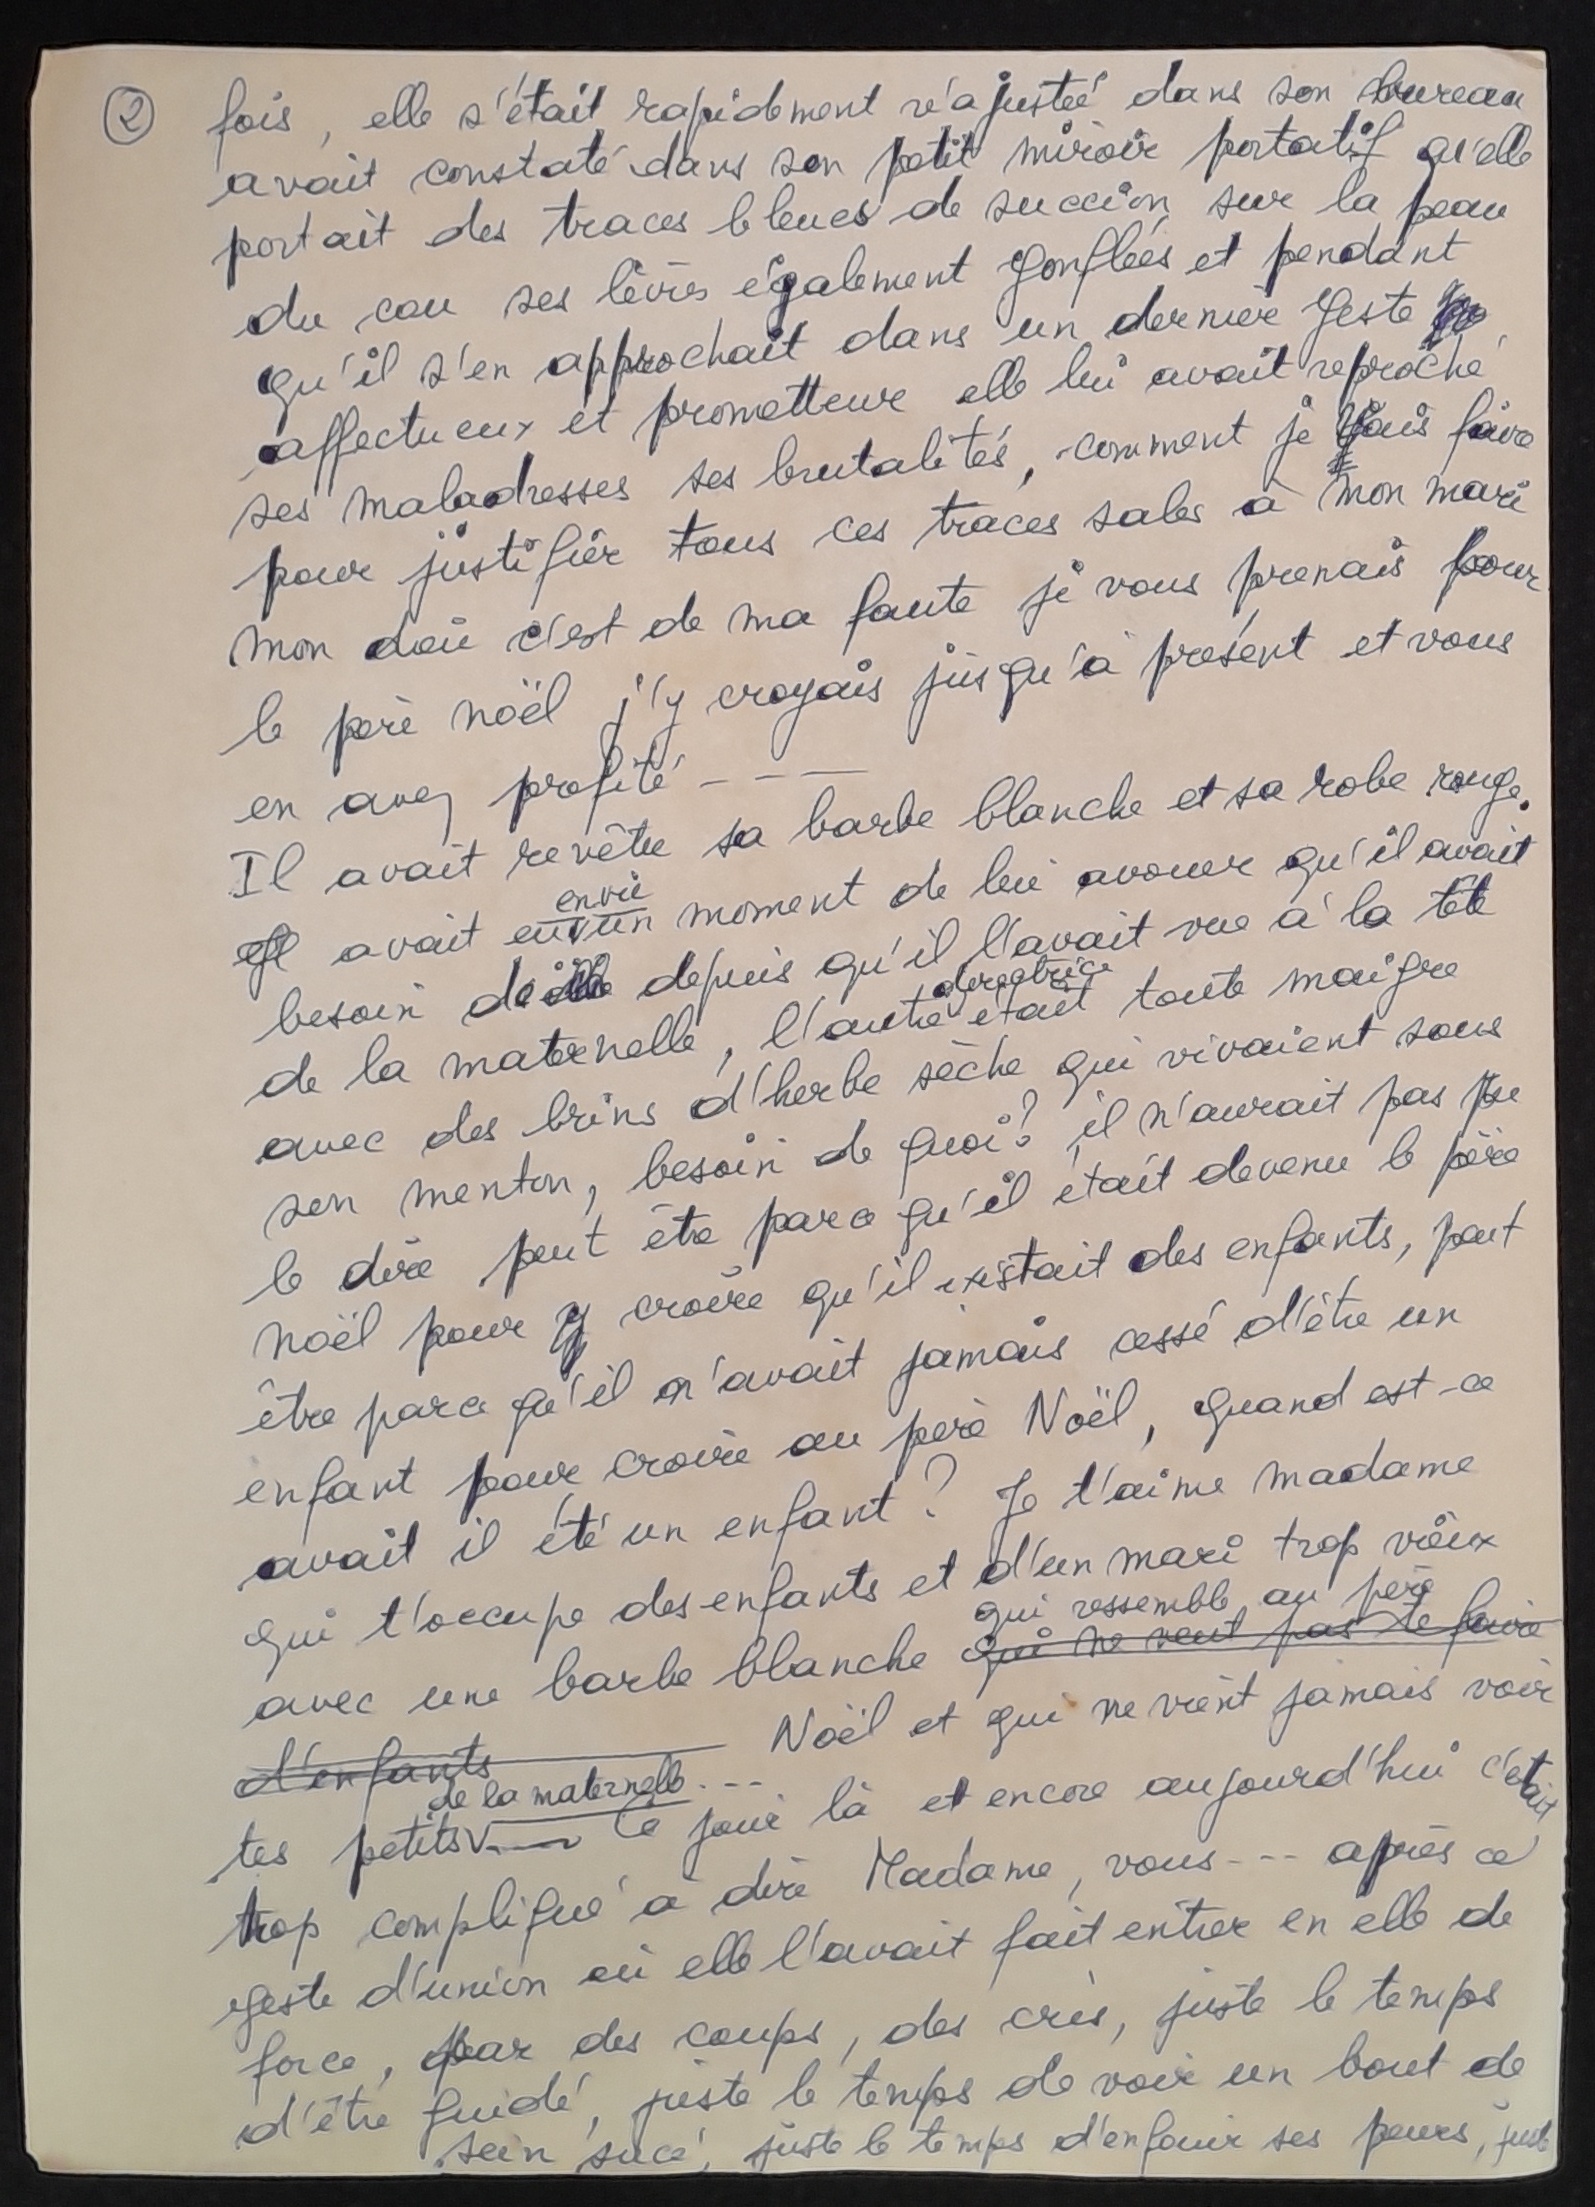 ② fois, elle s'était rapidement réajustée dans son bureau
avait constaté dans son petit miroir portatif qu'elle
portait des traces bleues de succion sur la peau
du cou ses lèvres également gonflées et pendant
qu'il s'en approchait dans un dernier geste
affectueux et prometteur elle lui avait reproché
ses maladresses ses brutalités, comment je vais faire
pour justifier tous ces traces sales à mon mari
mon dieu c'est de ma faute je vous prenais pour
le père noël j'y croyais jusqu'à présent et vous
en avez profité ----
Il avait revêtu sa barbe blanche et sa robe rouge.
envie
Il avait eu un moment de lui avouer qu'il avait
besoin d'elle depuis qu'il l'avait vue à la tête
directrice
de la maternelle, l'autre était toute maigre
avec des brins d'herbe sèche qui vivaient sous
son menton, besoin de quoi? il n'aurait pas pu
le dire peut être parce qu'il était devenu le père
noël pour y croire qu'il existait des enfants, peut
être parce qu'il n'avait jamais cessé d'être un
enfant pour croire au père Noël, quand est-ce
avait il été un enfant? Je t'aime madame
qui t'occupe des enfants et d'un mari trop vieux
qui ressemble au père
avec une barbe blanche qui ne veut pas te faire
d'enfants Noël et qui ne vient jamais voir
de la maternelle ---
tes petits Ce jour là et encore aujourd'hui c'était
trop compliqué à dire Madame, vous --- après ce
geste d'union où elle l'avait fait entrer en elle de
force, par des coups, des cris, juste le temps
d'être guidé, juste le temps de voir un bout de
sein sucé, juste le temps d'enfouir ses peurs, juste